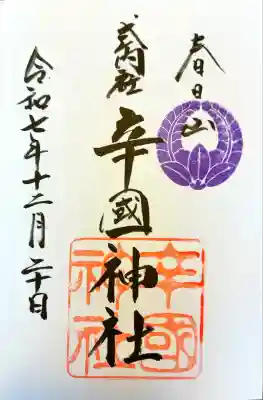 春日山
式内社
辛國神社
辛國
神社
令和七年十二月二十日